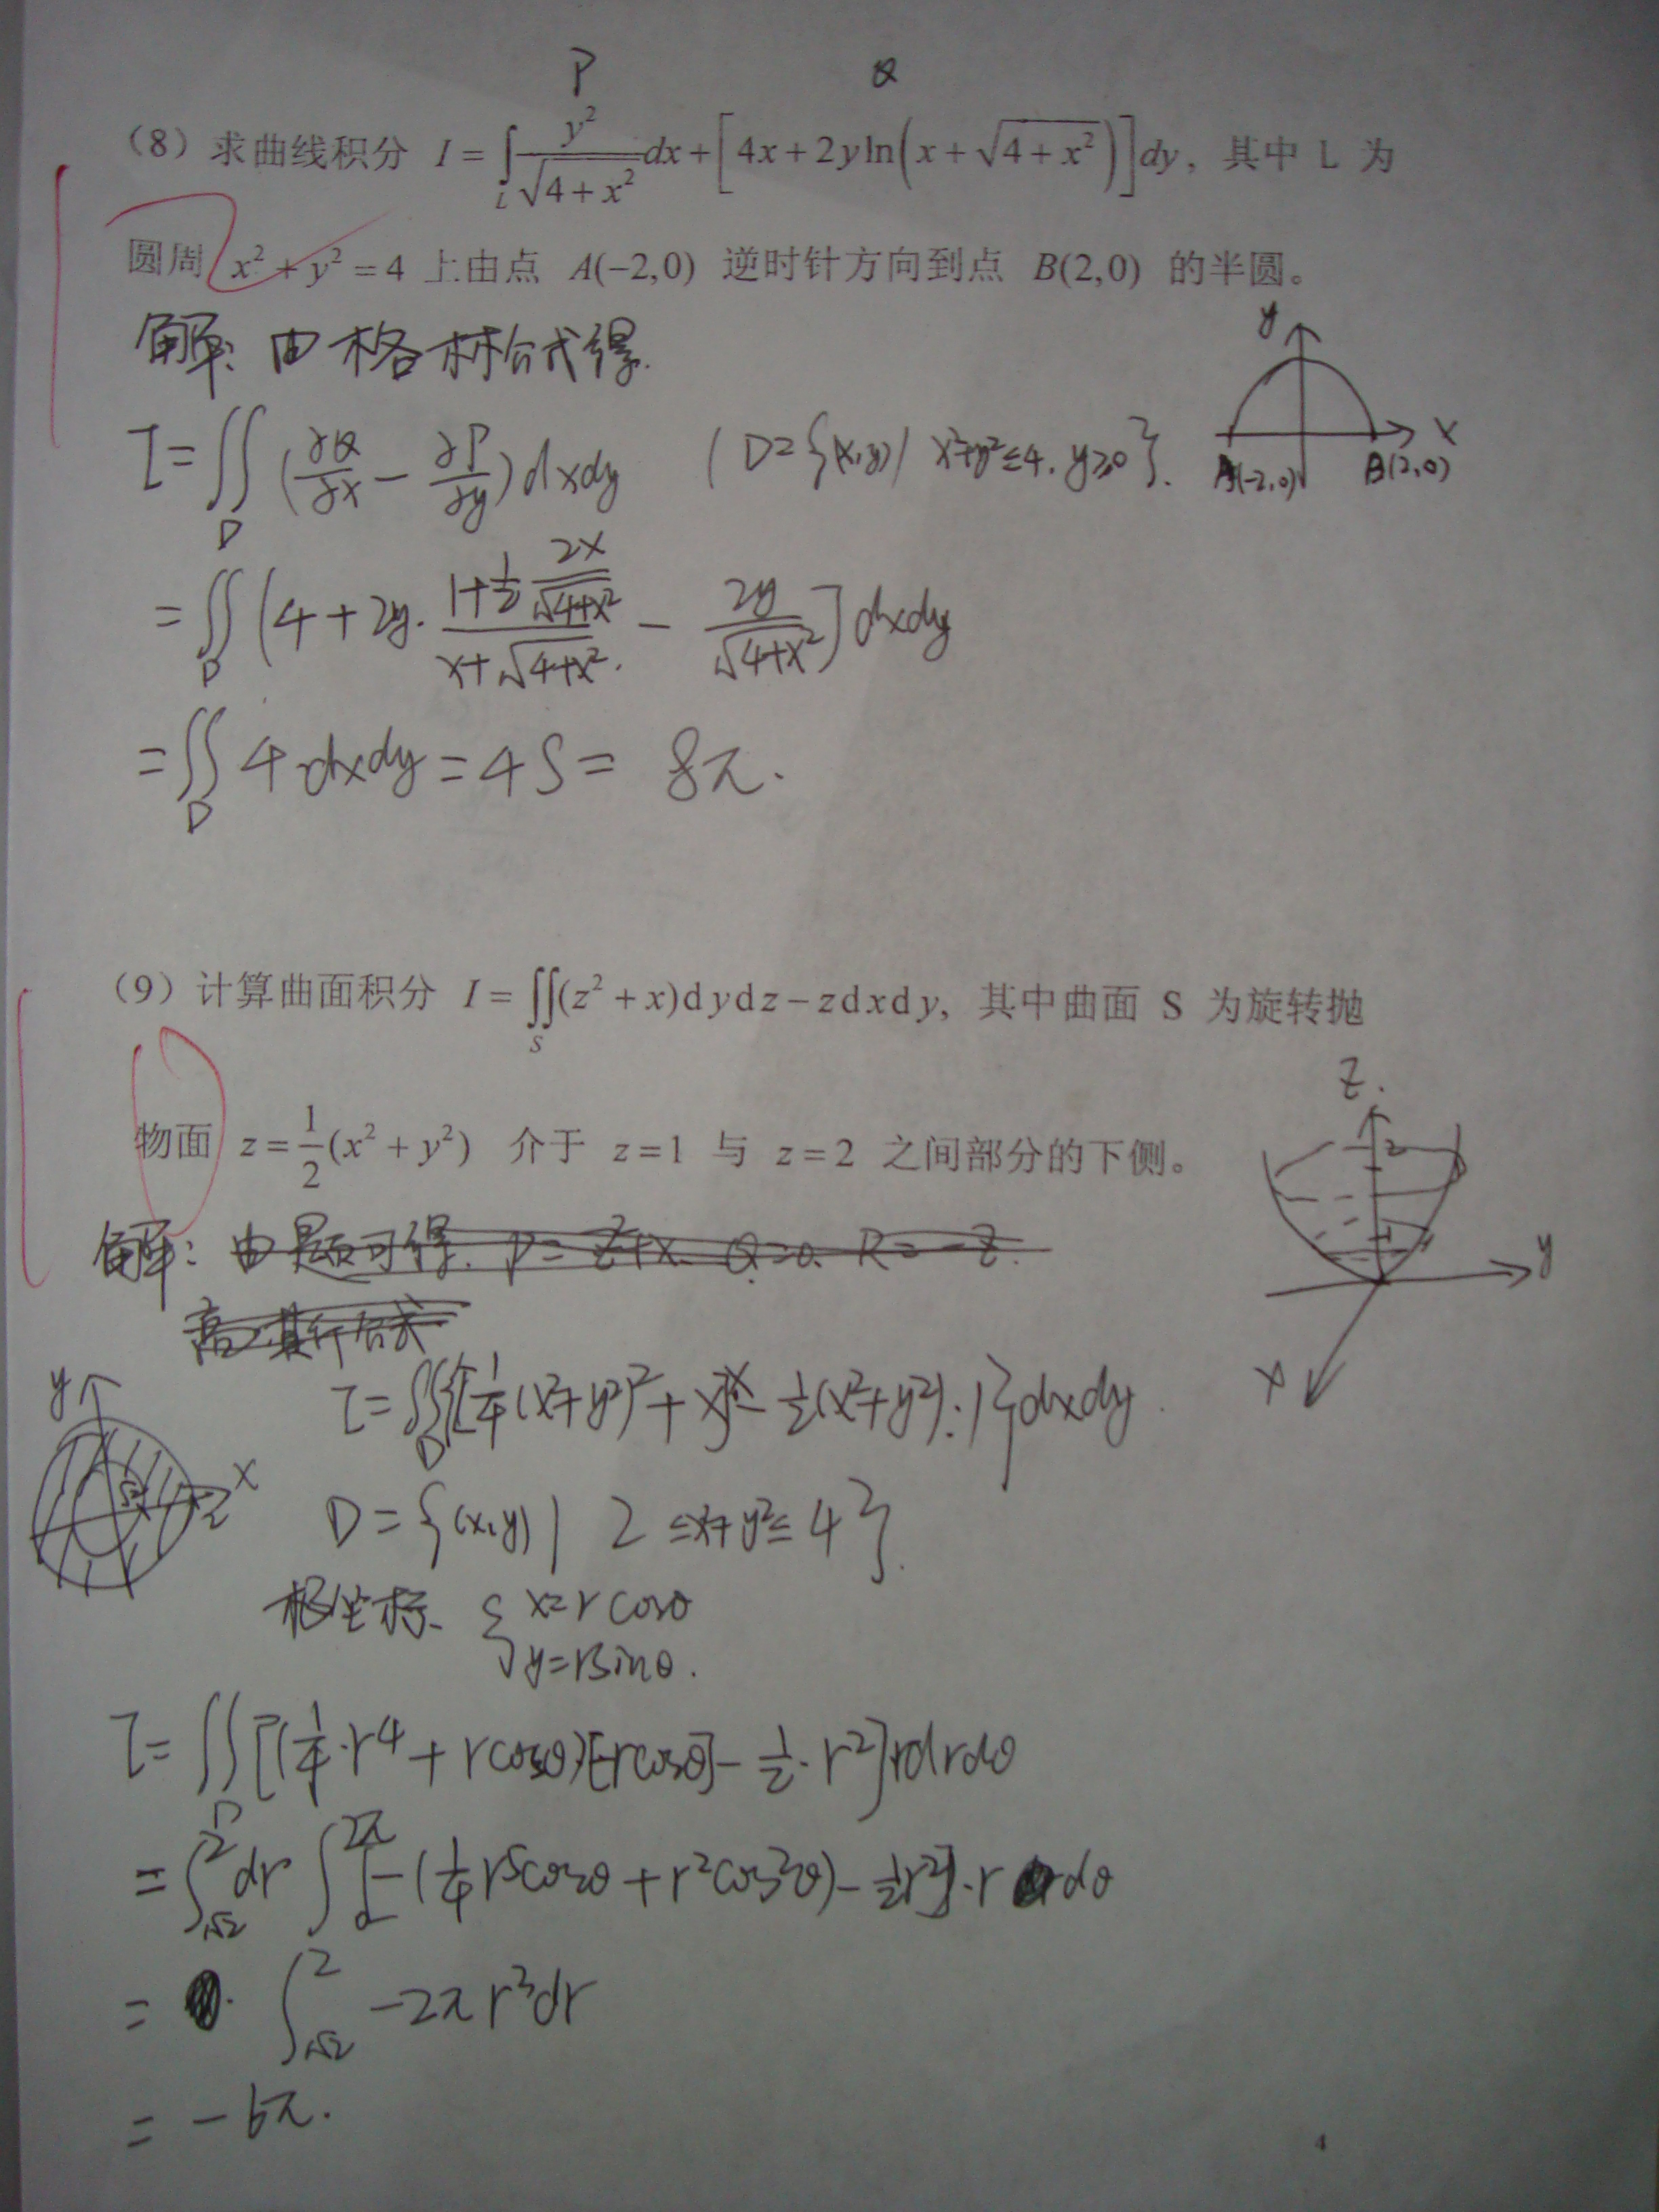 P Q
(8) 求曲线积分 I = ∫_L y²/√(4+x²) dx + [4x + 2y ln(x + √(4+x²))] dy, 其中 L 为
圆周 x² + y² = 4 上由点 A(−2,0) 逆时针方向到点 B(2,0) 的半圆。
解: 由格林公式得.
y
x
A(-2,0) B(2,0)
I = ∬_D (∂Q/∂x − ∂P/∂y) dxdy (D = {(x,y) | x²+y² ≤ 4, y ≥ 0}.
= ∬_D (4 + 2y · (1 + 1/2 · 2x/√(4+x²))/(x + √(4+x²)) − 2y/√(4+x²)] dxdy
= ∬_D 4 dxdy = 4S = 8π.
(9) 计算曲面积分 I = ∬_S (z² + x) dydz − z dxdy, 其中曲面 S 为旋转抛
物面 z = 1/2 (x² + y²) 介于 z = 1 与 z = 2 之间部分的下侧。
z.
2
1
y
x
解: 由题可得. P = z²+x. Q = 0. R = −z.
高斯公式
I = ∬_D {[1/4 (x²+y²)² + x] · x − 1/2 (x²+y²) · 1} dxdy.
y
x
√2
2
D = {(x,y) | 2 ≤ x²+y² ≤ 4}.
极坐标. { x = r cosθ
y = r sinθ.
I = ∬_D [(1/4 · r⁴ + r cosθ)[−r cosθ] − 1/2 · r²] r dr dθ
= ∫_√2^2 dr ∫_0^2π [−(1/4 r⁵ cosθ + r² cos²θ) − 1/2 r²] · r dθ
= ∫_√2^2 −2π r³ dr
= −6π.
4